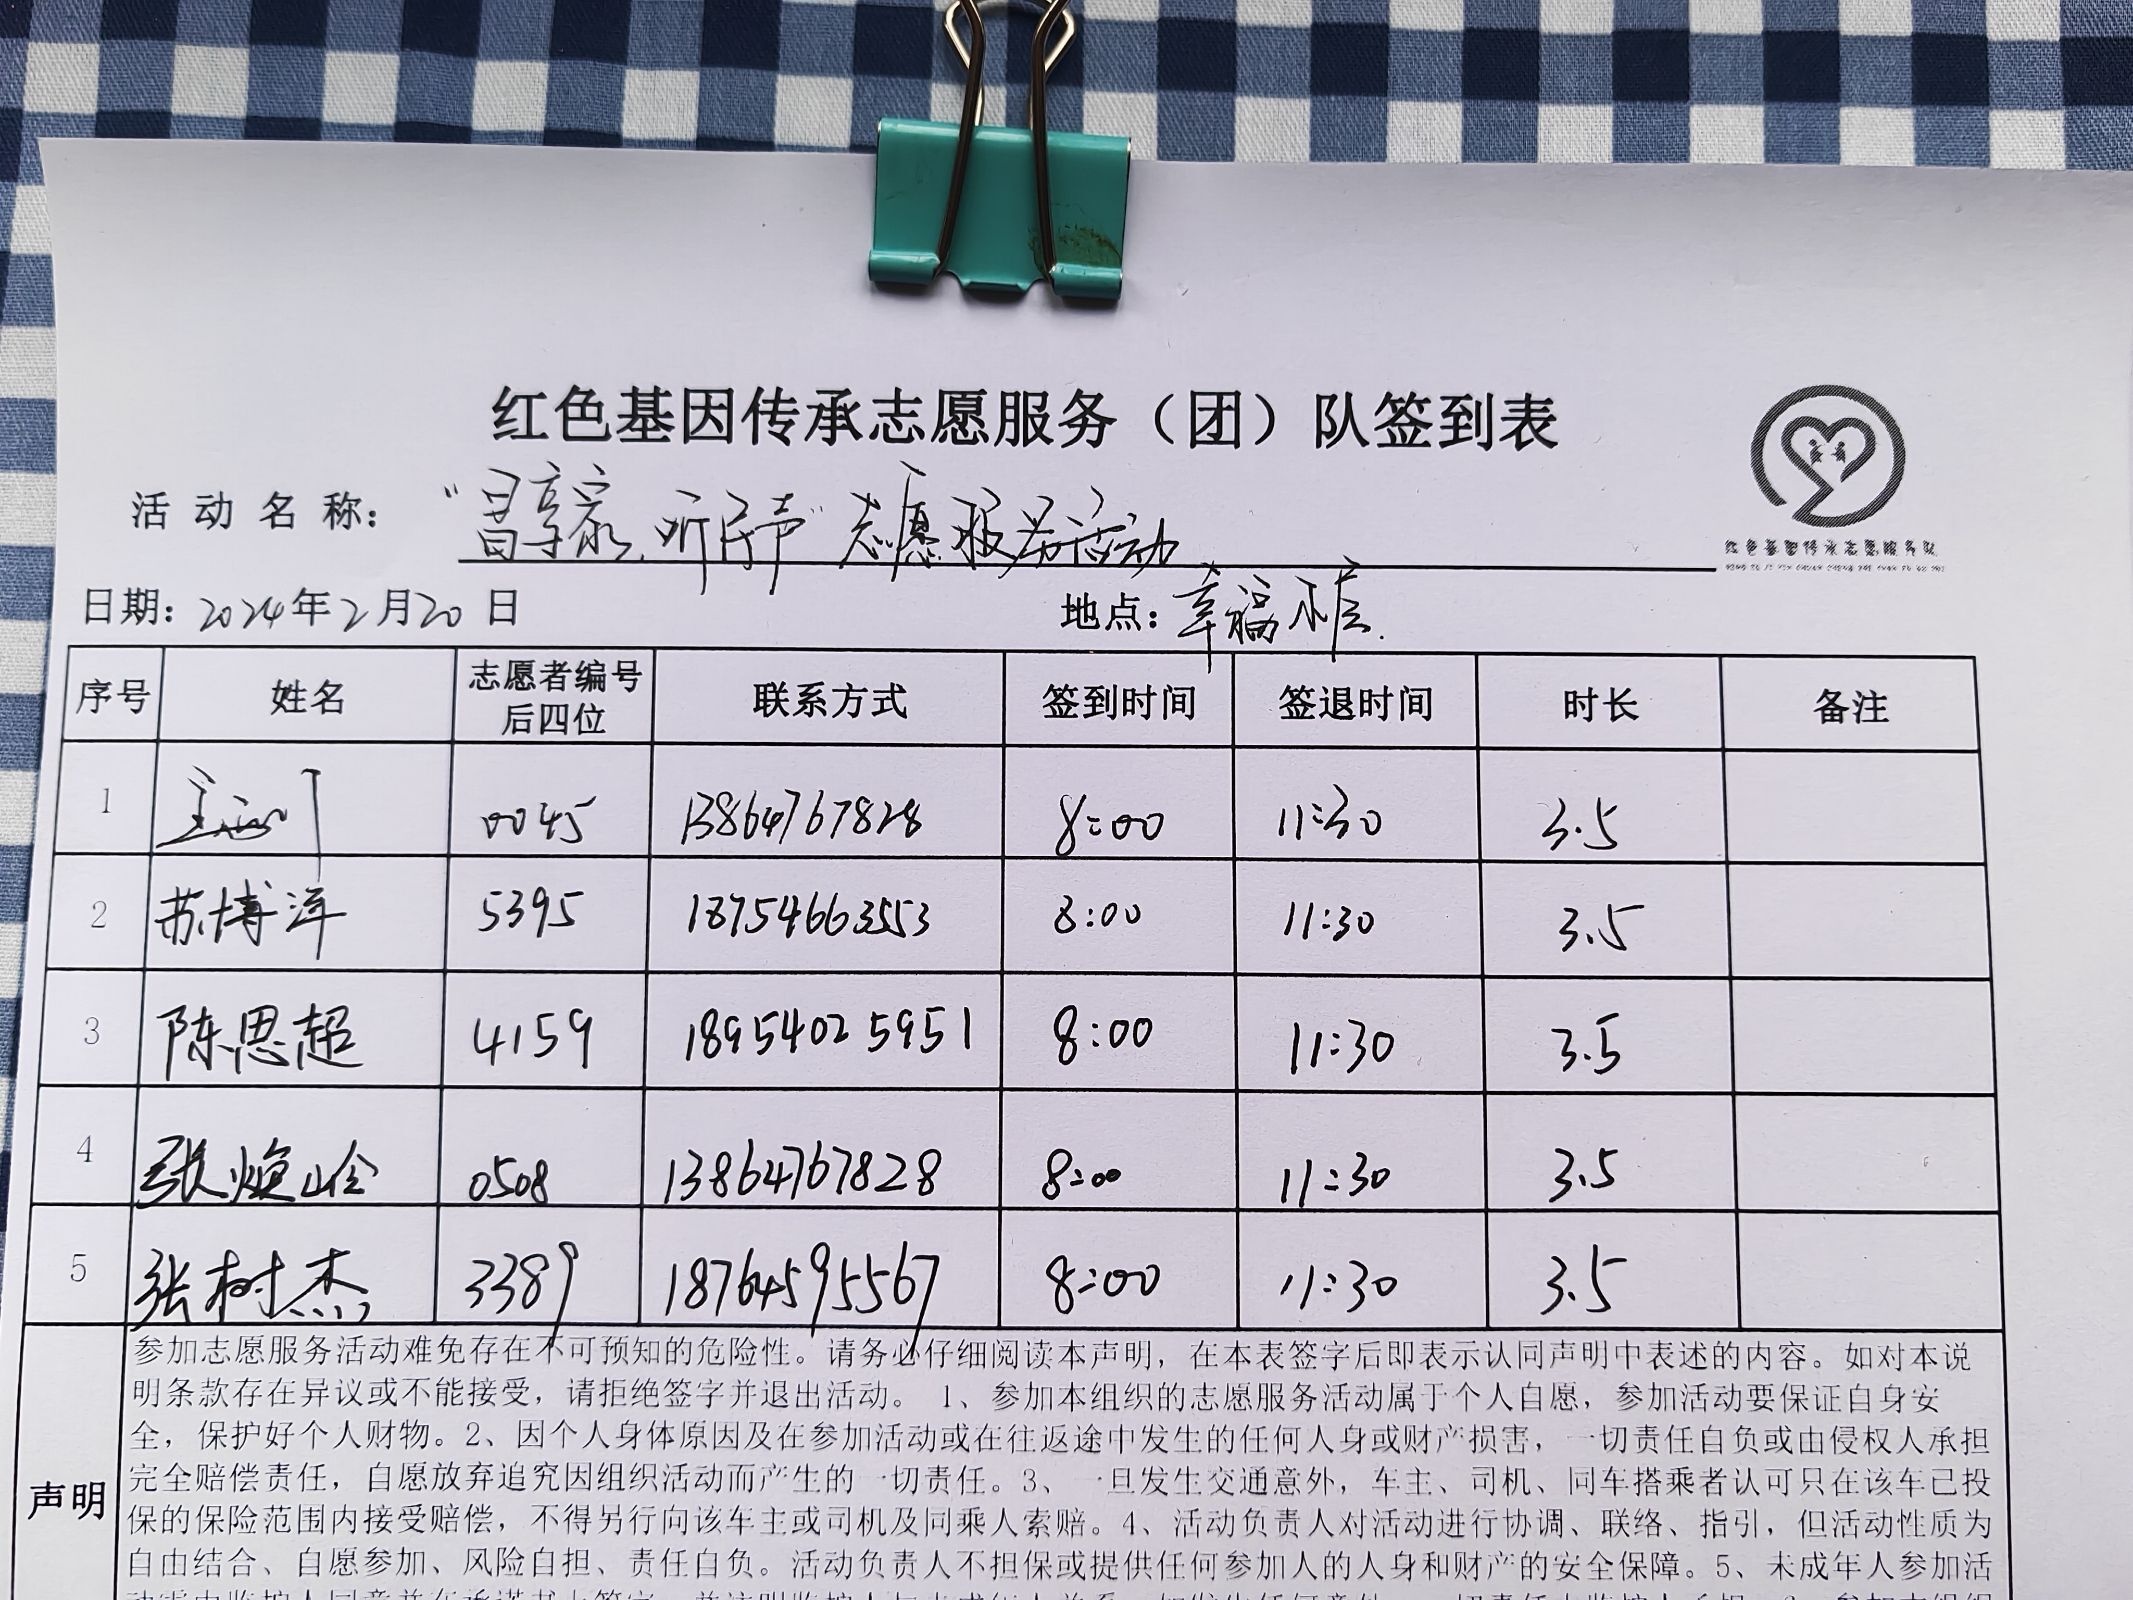 红色基因传承志愿服务（团）队签到表
红色基因传承志愿服务队
活动名称： 听民声”志愿服务活动
日期：2024年2月20日 地点：幸福
序号 姓名 志愿者编号后四位 联系方式 签到时间 签退时间 时长 备注
1 0045 13864767828 8:00 11:30 3.5
2 苏博洋 5395 18754663553 8:00 11:30 3.5
3 陈思超 4159 18954025951 8:00 11:30 3.5
4 张焕岭 0508 13864767828 8:00 11:30 3.5
5 张树杰 3389 18764595567 8:00 11:30 3.5
参加志愿服务活动难免存在不可预知的危险性。请务必仔细阅读本声明，在本表签字后即表示认同声明中表述的内容。如对本说
明条款存在异议或不能接受，请拒绝签字并退出活动。 1、参加本组织的志愿服务活动属于个人自愿，参加活动要保证自身安
全，保护好个人财物。2、因个人身体原因及在参加活动或在往返途中发生的任何人身或财产损害，一切责任自负或由侵权人承担
完全赔偿责任，自愿放弃追究因组织活动而产生的一切责任。3、一旦发生交通意外，车主、司机、同车搭乘者认可只在该车已投
声明 保的保险范围内接受赔偿，不得另行向该车主或司机及同乘人索赔。4、活动负责人对活动进行协调、联络、指引，但活动性质为
自由结合、自愿参加、风险自担、责任自负。活动负责人不担保或提供任何参加人的人身和财产的安全保障。5、未成年人参加活